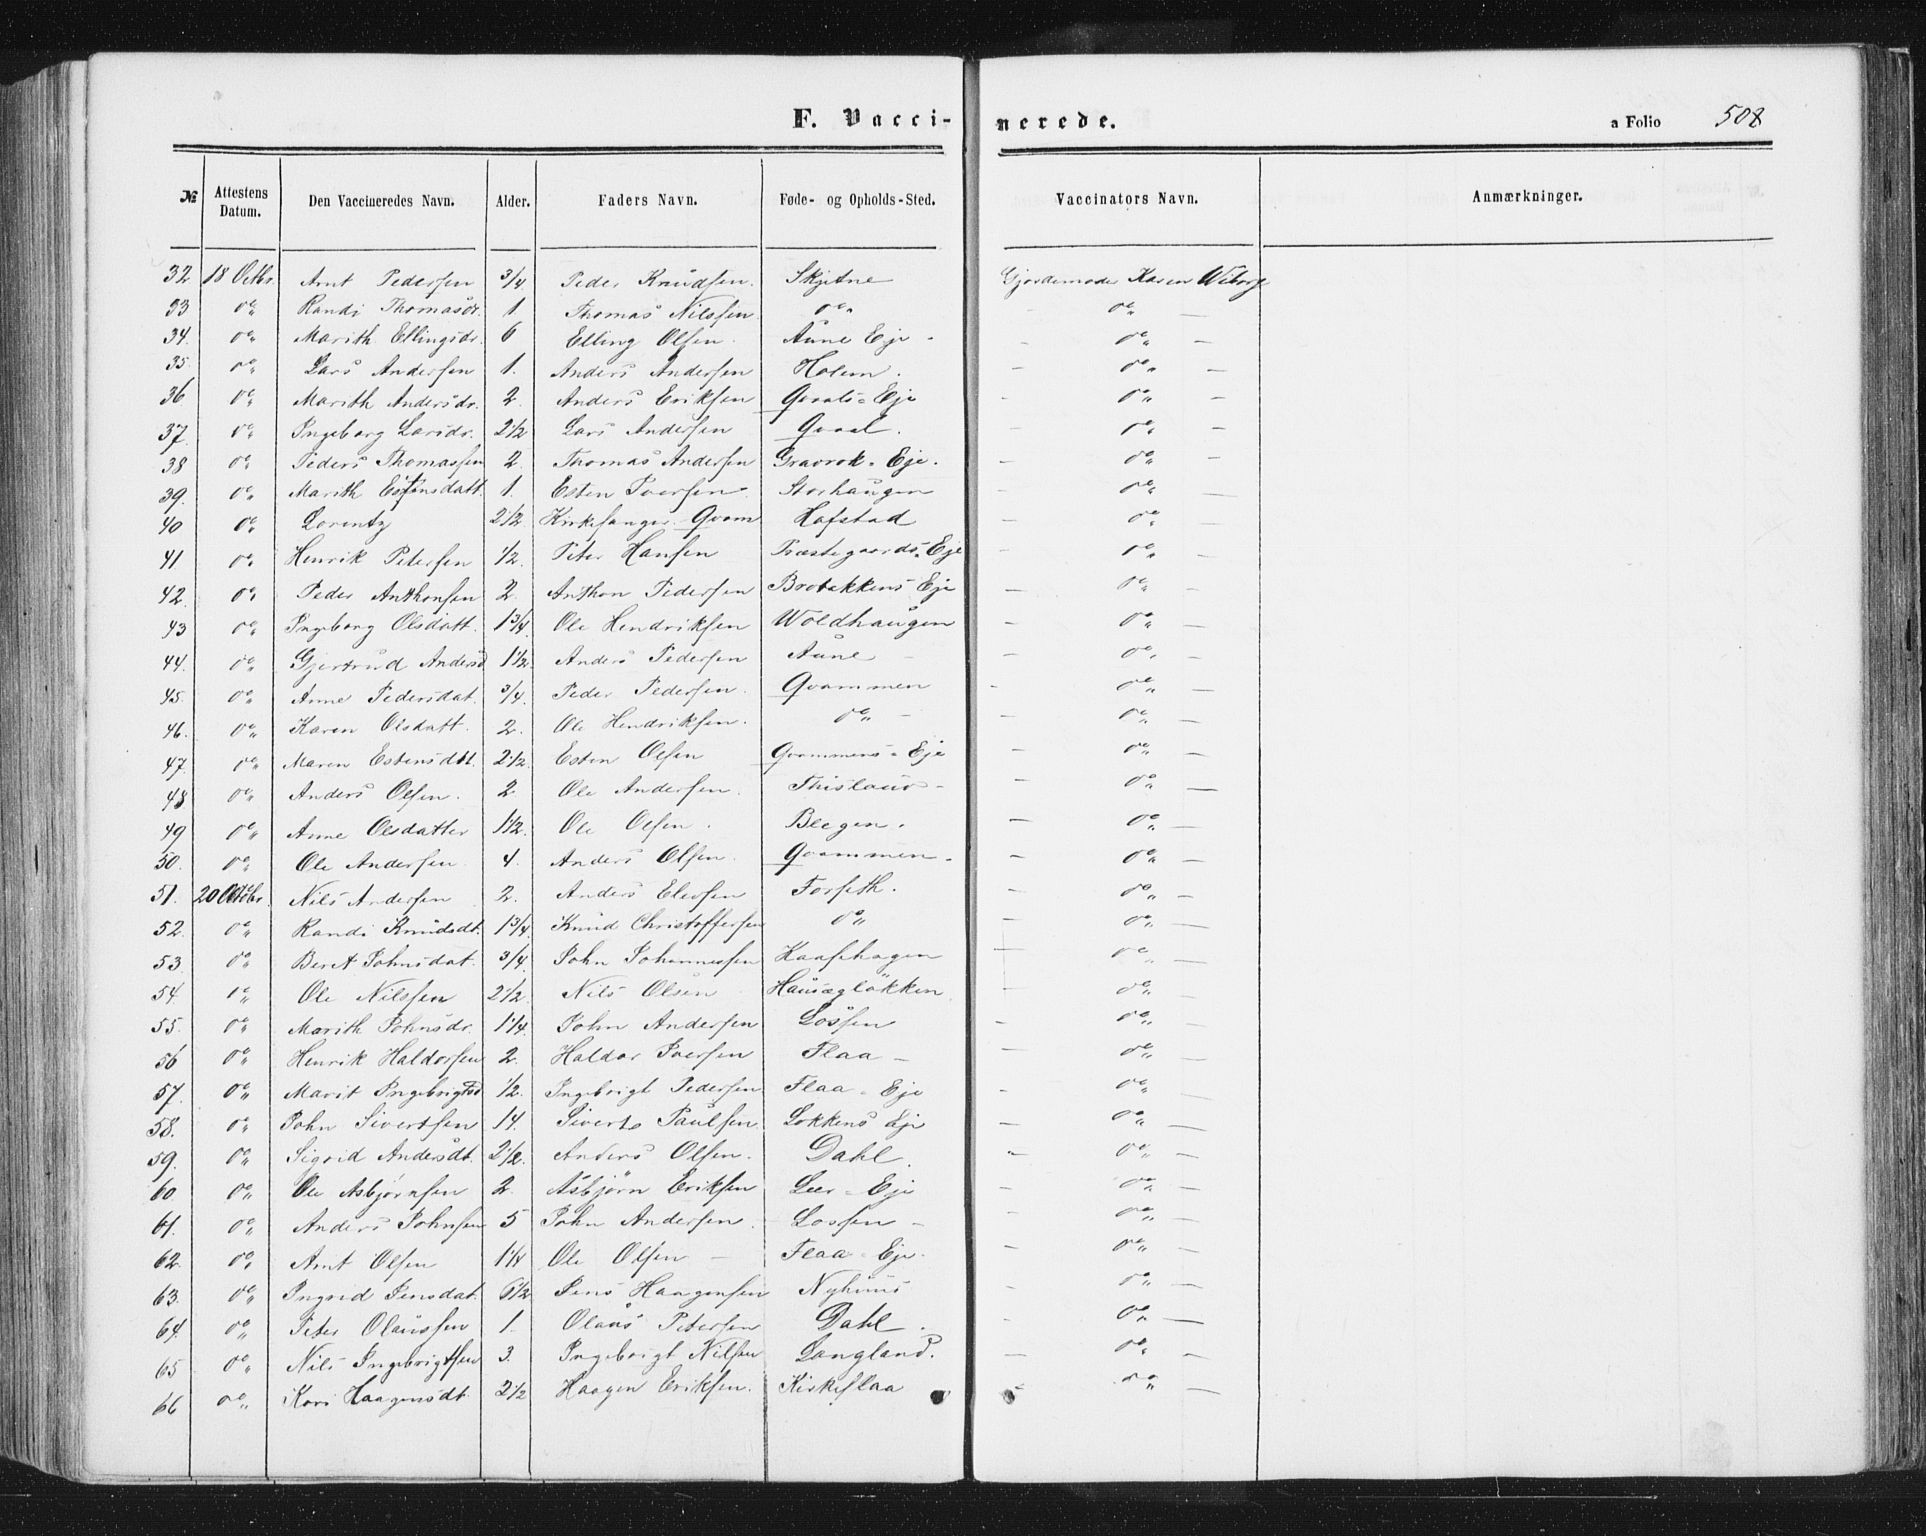 F. Vacci- nerede. a Folio 508
№ Attestens Datum. Den Vaccineredes Navn. Alder. Faders Navn. Føde- og Opholds-Sted. Vaccinators Navn. Anmærkninger.
32 18 Octbr Arnt Pedersen 3/4 Peder Knudsen. Skjetne Gjordemoder Karen Wiborg
33 do Randi Thomasdr. 1 Thomas Nilssen do do —
34. do Marith Ellingsdr. 6 Elling Olsen. Aune Eje - do —
35 do Lars Andersen 1. Anders Andersen Holem. - do —
36 do Marith Andersdr. 2. Anders Eriksen Qvals=Eje - do —
37. do Ingeborg Larsdr. 2 1/2 Lars Andersen Qvaal. - do —
38 do Peders Thomassen 2. Thomas Andersen Gravrok=Eje. - do —
39. do Marith Estensdatt. 1. Esten Iversen Storhaugen - do —
40 do Lorentz 2 1/2 Kirkesanger Qvam Hofstad - do —
41 do Henrik Petersen 1/2. Peter Hansen Præstegaards=Eje - do —
42. do Peder Anthonsen 2. Anthon Pedersen Brobekkens Eje - do —
43 do Ingeborg Olsdatt. 1 3/4 Ole Hendriksen Woldhaugen - do —
44. do Gjertrud Andersd 1 1/2 Anders Pedersen Aune - do —
45. do Anne Pedersdat. 3/4. Peder Pedersen. Qvammen - do —
46. do Karen Olsdatt. 2. Ole Hendriksen. do - - do —
47. do Maren Estensdtt. 2 1/2. Esten Olsen Qvammens=Eje - do —
48 do Anders Olsen. 2. Ole Andersen. - do —
49 do Anne Olsdatter 1 1/2. Ole Olsen. Blegen. - do —
50. do Ole Andersen 4. Anders Olsen. Qvammen. - do —
51. 20 Octobr. Nils Andersen 2. Anders Forseth. - do —
52. do Randi Knudsdt. 1 3/4. Knud Christoffersen do - do —
53 do Beret Johnsdat. 3/4. John Johannesen - do —
54. do Ole Nilssen 2 1/2. Nils Olsen - do —
55. do Marith Johnsdr. 1 1/4. John Andersen Lossen - do —
56 do Henrik Haldorsen 2. Haldor Iversen Flaa - - do —
57. do Marit Ingebrigtsd 1/2. Ingebrigt Pedersen Flaa=Eje - do —
58. do John Sivertsen 14. Siverts Paulsen Løkkens Eje - do —
59. do Sigrid Andersdt. 2 1/2. Anders Olsen. Dahl. - do —
60. do Ole Asbjørnsen 2. Asbjörn Eriksen Leer=Eje - do —
61. do Anders Johnsen 5 John Andersen. Lossen - - do —
62. do Arnt Olsen 1 1/4 Ole Olsen - Flaa=Eje. - do —
63. do Ingrid Jensdat. 6 1/2 Jens Haagensen Nyhuus - do —
64. do Peter Olaussen 1. Olaus Petersen Dahl. - do —
65 do Nils Ingebrigtsen 3. Ingebrigt Nilsen Langland. - do —
66 do Kari Haagensdt. 2 1/2 Haagen Eriksen. Kirkeflaa - do —